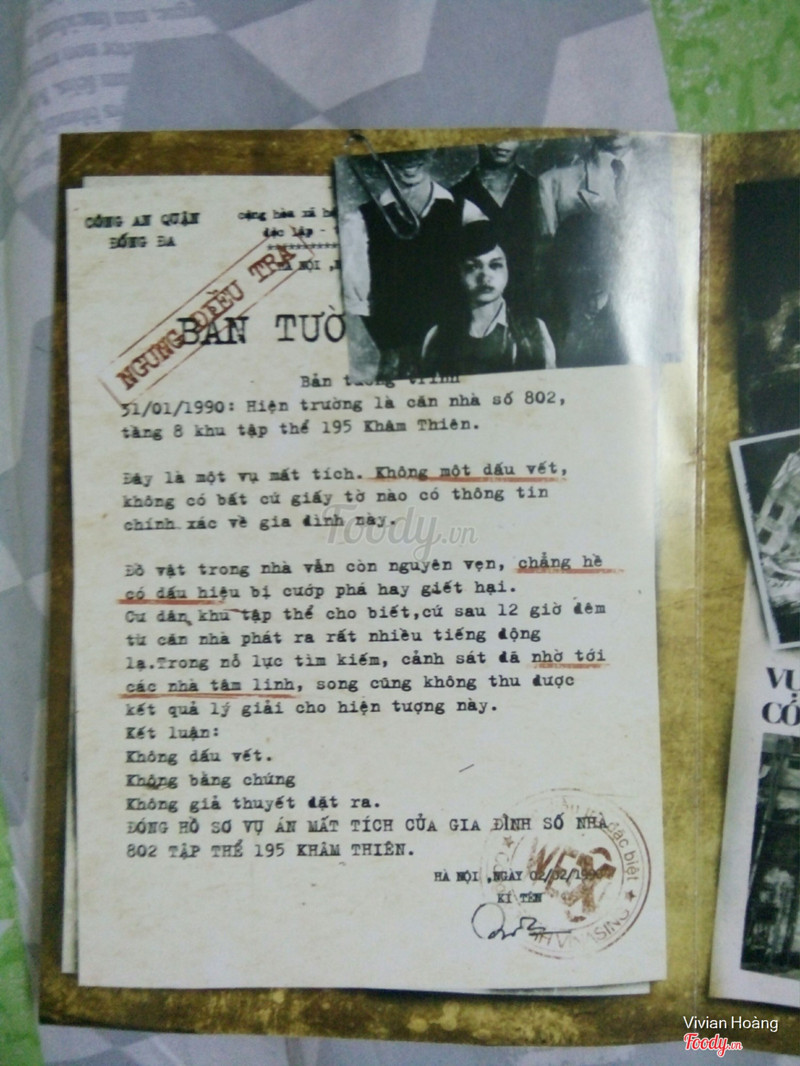 CÔNG AN QUẬN
ĐỐNG ĐA
cộng hòa xã
độc lập -
HÀ NỘI ,N
NGƯNG ĐIỀU TRA
BẢN TƯỜ
Bản tường trình
31/01/1990: Hiện trường là căn nhà số 802,
tầng 8 khu tập thể 195 Khâm Thiên.
Đây là một vụ mất tích. Không một dấu vết,
không có bất cứ giấy tờ nào có thông tin
chính xác về gia đình này.
Đồ vật trong nhà vẫn còn nguyên vẹn, chẳng hề
có dấu hiệu bị cướp phá hay giết hại.
Cư dân khu tập thể cho biết,cứ sau 12 giờ đêm
từ căn nhà phát ra rất nhiều tiếng động
lạ.Trong nỗ lực tìm kiếm, cảnh sát đã nhờ tới
các nhà tâm linh, song cũng không thu được
kết quả lý giải cho hiện tượng này.
Kết luận:
Không dấu vết.
Không bằng chứng
Không giả thuyết đặt ra.
ĐÓNG HỒ SƠ VỤ ÁN MẤT TÍCH CỦA GIA ĐÌNH SỐ NHÀ
802 TẬP THỂ 195 KHÂM THIÊN.
HÀ NỘI ,NGÀY 02/02/1990
KÍ TÊN
đặc biệt
VINASING
VỤ
CÓ
Foody.vn
Vivian Hoàng
Foody.vn